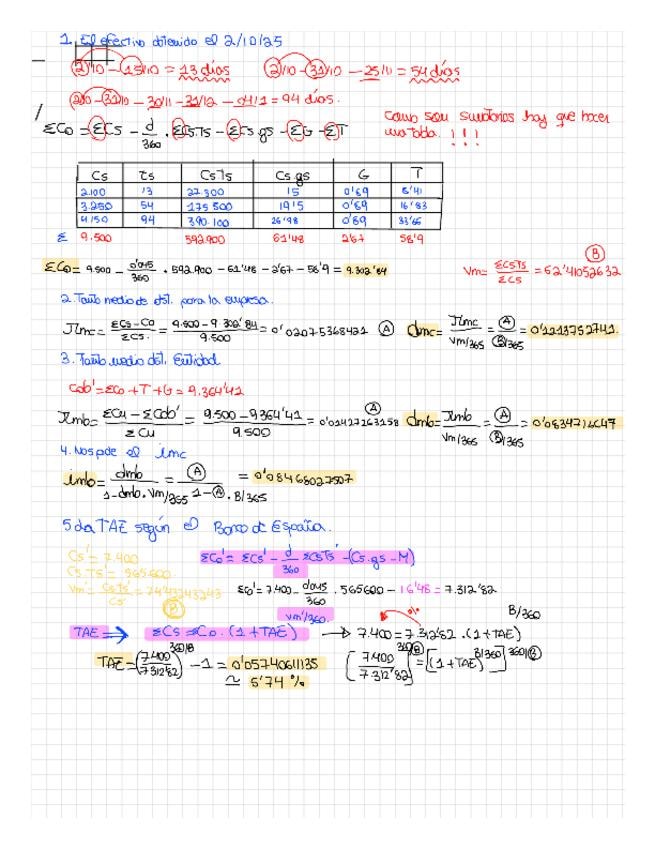 1. El efectivo obtenido el 2/10/25
2/10 - 15/10 = 13 días 2/10 - 31/10 - 25/11 = 54 días
2/10 - 31/10 - 30/11 - 31/12 - 04/1 = 94 días.
Como son sumatorios hay que hacer
una tabla. !!!
ΣCo = ΣCs - d/360 . ΣCsTs - ΣCs.gs - ΣG - ΣT
Cs Ts CsTs Cs.gs G T
2.100 13 27.300 15 0'89 5'41
3.250 54 175.500 19'5 0'89 16'83
4.150 94 390.100 26'98 0'89 33'66
Σ 9.500 592.900 61'48 2'67 58'9
ΣCo = 9.500 - 0'045/360 . 592.900 - 61'48 - 2'67 - 58'9 = 9.302'84
Vm = ΣCsTs/ΣCs = 62'41052632 B
2. Tanto medio de dst. para la empresa.
ΣCs-Co/ΣCs. = 9.500-9.302'84/9.500 = 0'02075368421 A dmc = A/B/365 = 0'1213752741.
3. Tanto medio dst. Entidad
Cob' = ΣCo + T + G = 9.364'41
ΣCu - ΣCob'/ΣCu = 9.500-9364'41/9.500 = 0'01427263158 A dmb = A/B/365 = 0'08347146047
4. Nos pide el imc
imb = dmb/1-dmb.Vm/365 = A/1-A.B/365 = 0'08468027507
5 da TAE según el Banco de España.
Cs' = 7.400
Cs.Ts' = 565.600
Vm' = CsTs'/Cs' = 76'43243243
B
ΣCo' = ΣCs' - d/360 ΣCsTs' - (Cs.gs - M)
ΣCo' = 7.400 - 0'045/360 . 565600 - 16'48 = 7.312'82
Vm'/360.
B/360
TAE ⇒ ΣCs = Co . (1+TAE) → 7.400 = 7.312'82 . (1+TAE)
TAE = (7.400/7.312'82) 360/B - 1 = 0'05740611135
≃ 5'74 %
[7.400/7.312'82] 360/B = [(1+TAE) B/360] 360/B